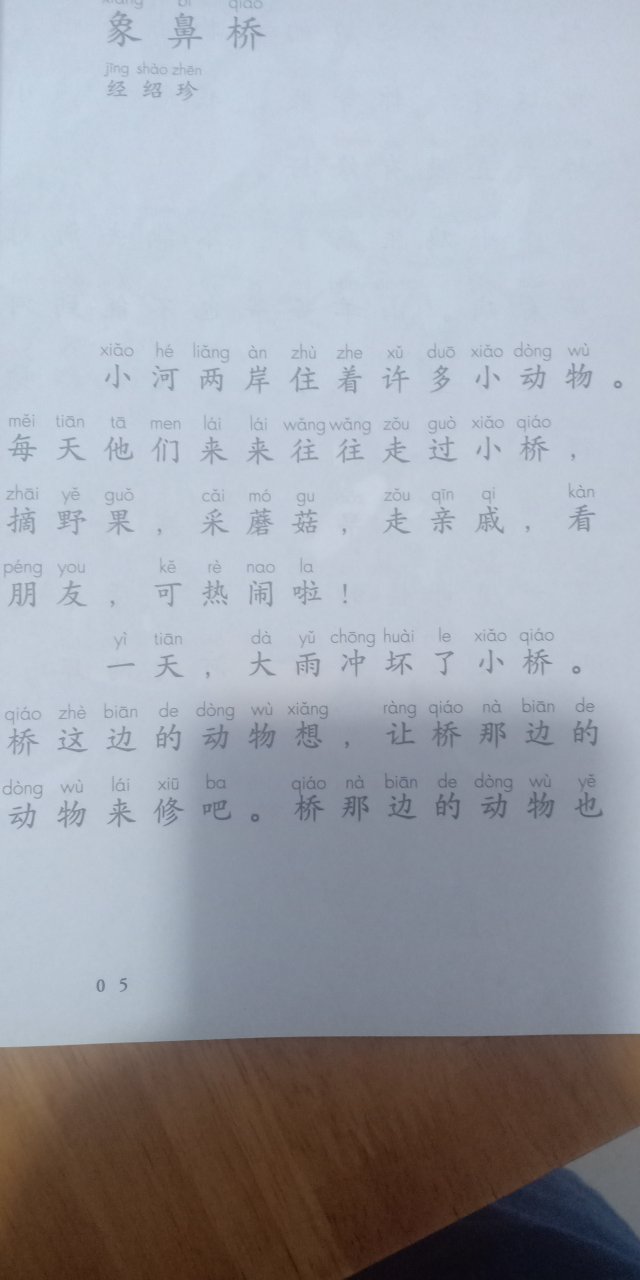 xiàng bí qiáo
象鼻桥
jīng shào zhēn
经绍珍
xiǎo hé liǎng àn zhù zhe xǔ duō xiǎo dòng wù
小河两岸住着许多小动物。
měi tiān tā men lái lái wǎng wǎng zǒu guò xiǎo qiáo
每天他们来来往往走过小桥，
zhāi yě guǒ cǎi mó gu zǒu qīn qi kàn
摘野果，采蘑菇，走亲戚，看
péng you kě rè nao la
朋友，可热闹啦！
yì tiān dà yǔ chōng huài le xiǎo qiáo
一天，大雨冲坏了小桥。
qiáo zhè biān de dòng wù xiǎng ràng qiáo nà biān de
桥这边的动物想，让桥那边的
dòng wù lái xiū ba qiáo nà biān de dòng wù yě
动物来修吧。桥那边的动物也
05